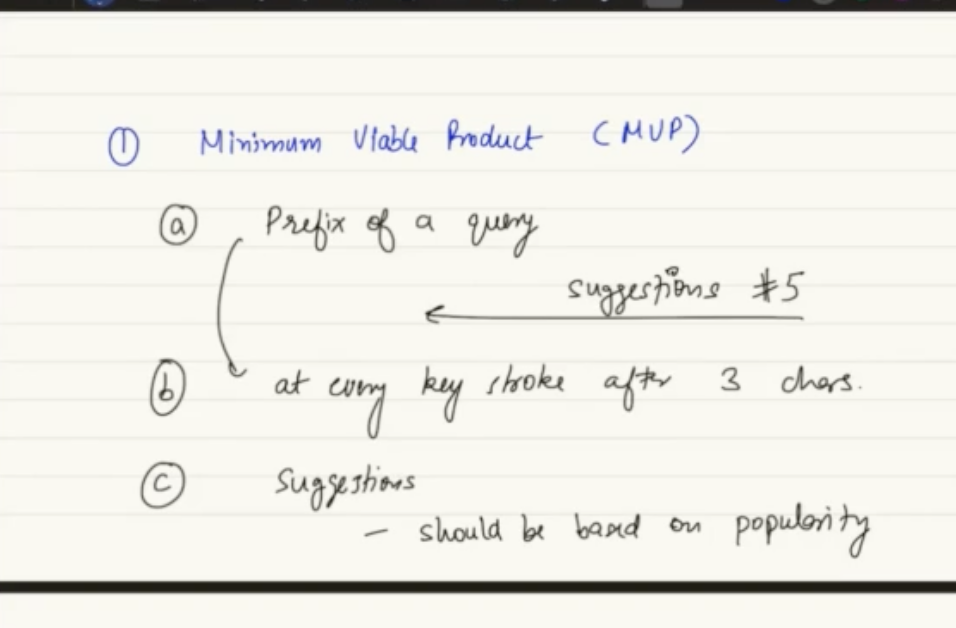 ① Minimum Viable Product (MVP)
ⓐ Prefix of a query
suggestions #5
ⓑ at every key stroke after 3 chars.
ⓒ Suggestions
– should be based on popularity